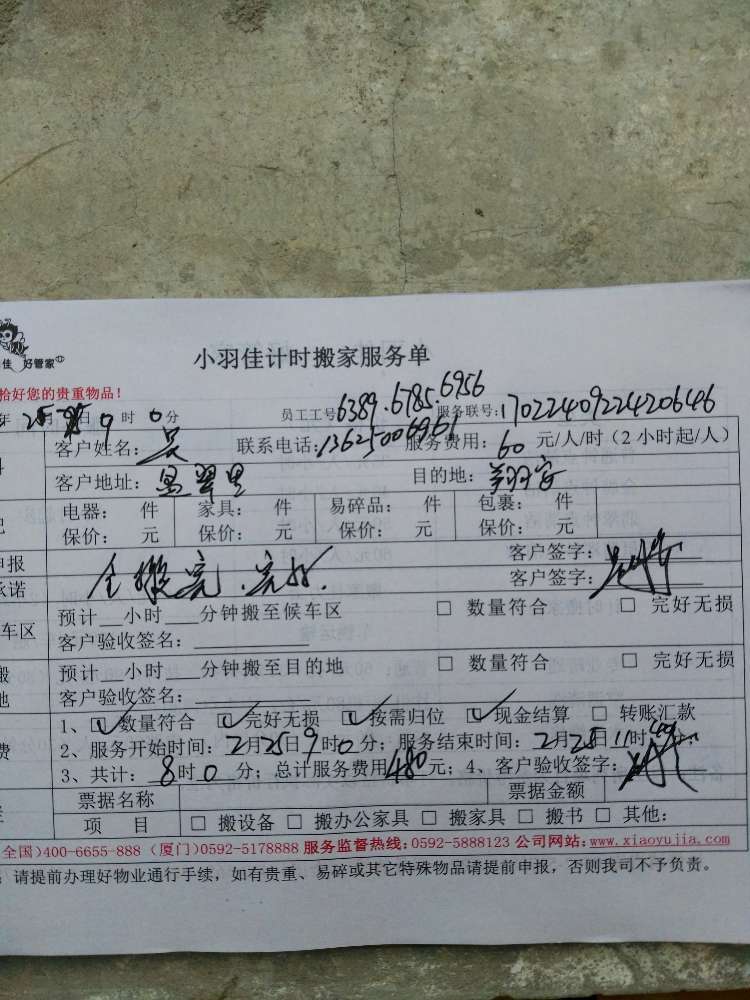 佳 好管家
拾好您的贵重物品！
小羽佳计时搬家服务单
年 25日 9时 0分 员工工号:6389.6785.6956 服务联号:17022409224220646
客户姓名: 吴 联系电话:13625006961 服务费用: 60 元/人/时（2小时起/人）
客户地址: 翠里 目的地: 翔安
电器: 件 家具: 件 易碎品: 件 包裹: 件
保价: 元 保价: 元 保价: 元 保价: 元
申报 全搬完.完好. 客户签字:
承诺 客户签字:
车区 预计__小时___分钟搬至候车区 □ 数量符合 □ 完好无损
客户验收签名:
搬 预计__小时___分钟搬至目的地 □ 数量符合 □ 完好无损
地 客户验收签名:
1、☑数量符合 ☑完好无损 ☑按需归位 ☑现金结算 □ 转账汇款
费 2、服务开始时间: 2月25日9时0分；服务结束时间: 2月25日11时40
3、共计: 8时0分；总计服务费用480元；4、客户验收签字:
票据名称 票据金额
项 目 □ 搬设备 □ 搬办公家具 □ 搬家具 □ 搬书 □ 其他:
全国)400-6655-888 (厦门)0592-5178888 服务监督热线:0592-5888123 公司网站:www.xiaoyujia.com
：请提前办理好物业通行手续，如有贵重、易碎或其它特殊物品请提前申报，否则我司不予负责。